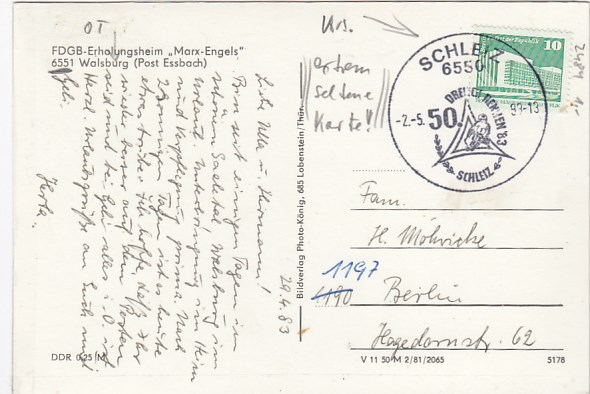 OT
FDGB-Erholungsheim „Marx-Engels"
6551 Walsburg (Post Essbach)
Liebe Ulla u. Hermann!
Bin seit einigen Tagen im
schönen Saaletal Walsburg im
Urlaub. Unterbringung im Heim
und Verpflegung prima. Nach
sonnigen Tagen ist es heute
etwas trübe. Ich hoffe, daß Ihr
wieder besser auf dem Posten
seid und bei Gabi alles i. O. ist
Herzl. Urlaubsgrüße an Euch und
Gabi.
Herta.
29.4.83
DDR 0,25 M
Bildverlag Photo-König, 685 Lobenstein/Thür.
Urs.
extrem
seltene
Karte!!
SCHLEIZ
6550
-2.-5.
83-13
50.
DREIECKRENNEN '83
SCHLEIZ
10
2484
Fam.
H. Möhricke
1197
1190
Berlin
Hagedornstr. 62
V 11 50 M 2/81/2065
5178